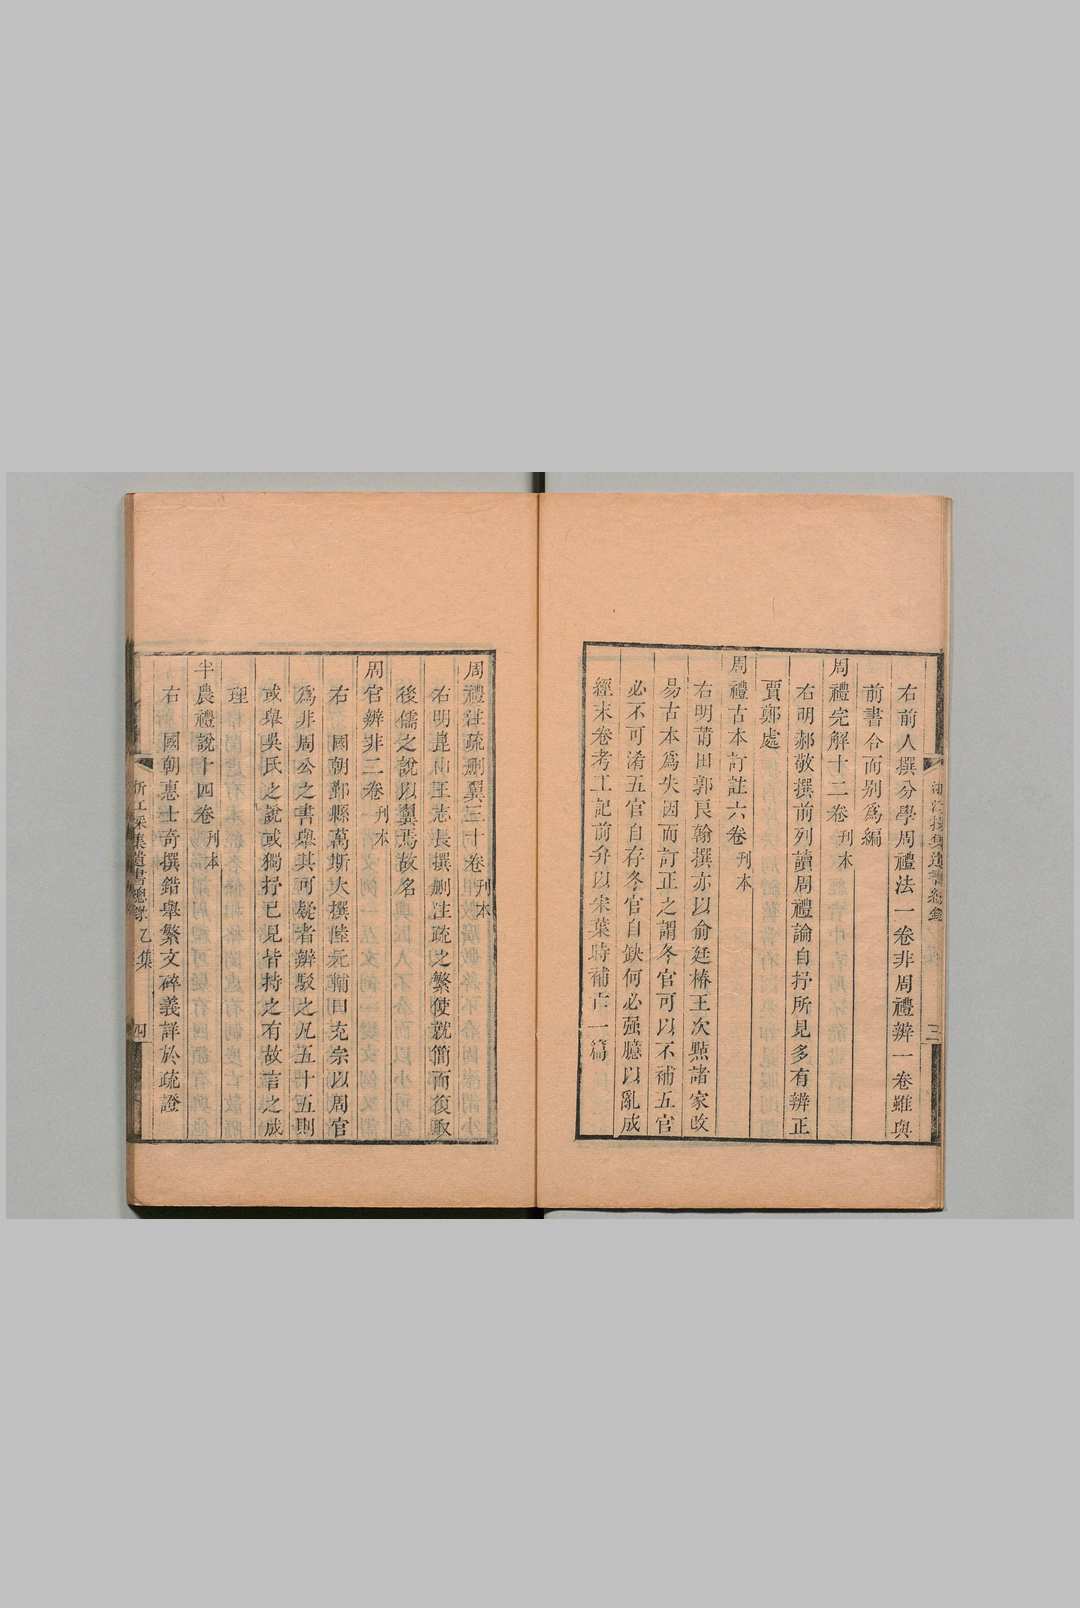 右前人撰分學周禮法一卷非周禮辨一卷雖與
前書合而別爲編
周禮完解十二卷刋本
右明郝敬撰前列讀周禮論自抒所見多有辨正
賈鄭處
周禮古本訂註六卷刋本
右明莆田郭良翰撰亦以俞廷椿王次㸃諸家改
易古本爲失因而訂正之謂冬官可以不補五官
必不可淆五官自存冬官自缺何必强臆以亂成
經末卷考工記前弁以宋葉時補亡一篇
浙江採集遺書總錄
三
周禮注疏刪翼三十卷刋本
右明崑山王志長撰刪注疏之繁使就簡而復取
後儒之說以翼焉故名
周官辨非二卷刋本
右國朝鄞縣萬斯大撰陸元輔曰充宗以周官
爲非周公之書舉其可疑者辨駁之凡五十五則
或舉吳氏之說或獨抒已見皆持之有故言之成
理
半農禮說十四卷刋本
右國朝惠士奇撰錯舉繁文碎義詳於疏證
浙江採集遺書總錄 乙集
四